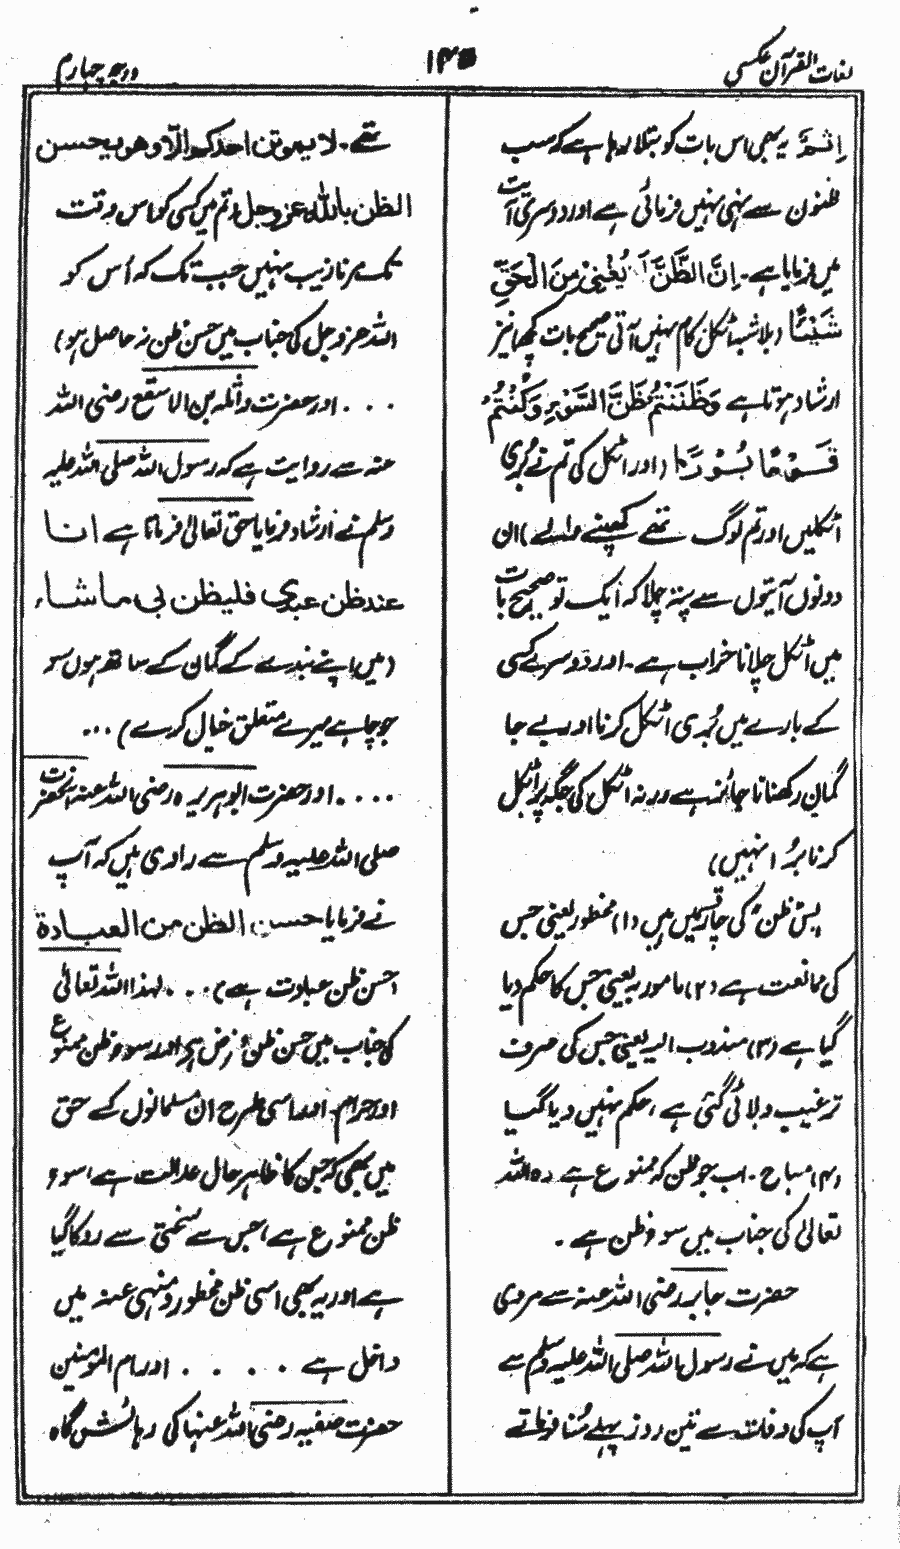 لغات القرآن عکسی
۱۴۵
درجہ چہارم
اِثْمٌ یہ بھی اس بات کو بتلا رہا ہے کہ سب
ظنون سے نہی نہیں فرمائی ہے اور دوسری آیت
میں فرمایا ہے۔ اِنَّ الظَّنَّ لَا یُغْنِیْ مِنَ الْحَقِّ
شَیْئًا (بلاشبہ اٹکل کام نہیں آتی صحیح بات کچھ) نیز
ارشاد ہوتا ہے وَظَنَنْتُمْ ظَنَّ السَّوْءِ وَکُنْتُمْ
قَوْمًا بُوْرًا (اور اٹکل کی تم نے بُری
اٹکلیں اور تم لوگ تھے کھپنے والے) ان
دونوں آیتوں سے پتہ چلا کہ ایک تو صحیح بات
میں اٹکل چلانا خراب ہے۔ اور دوسرے کسی
کے بارے میں بُری اٹکل کرنا اور بے جا
گمان رکھنا ناجائز ہے ورنہ اٹکل کی جگہ پر اٹکل
کرنا بُرا نہیں)
پس ظن کی چار قسمیں ہیں (۱) محظور یعنی جس
کی ممانعت ہے (۲) مامور بہ یعنی جس کا حکم دیا
گیا ہے (۳) مندوب الیہ یعنی جس کی صرف
ترغیب دلائی گئی ہے، حکم نہیں دیا گیا
(۴) مباح۔ اب جو ظن کہ ممنوع ہے وہ اللہ
تعالیٰ کی جناب میں سوء ظن ہے۔
حضرت جابر رضی اللہ عنہ سے مروی
ہے کہ میں نے رسول اللہ صلی اللہ علیہ وسلم سے
آپ کی وفات سے تین روز پہلے سُنا فرماتے
تھے۔ لا یموتن احدکم الّا وھو یحسن
الظن باللہ عزوجل (تم میں کسی کو اس وقت
تک مرنا زیب نہیں جب تک کہ اُس کو
اللہ عزوجل کی جناب میں حسن ظن نہ حاصل ہو)
۔۔۔ اور حضرت واثلہ بن الاسقع رضی اللہ
عنہ سے روایت ہے کہ رسول اللہ صلی اللہ علیہ
وسلم نے ارشاد فرمایا حق تعالیٰ فرماتا ہے انا
عند ظن عبدی فلیظن بی ماشاء
(میں اپنے بندے کے گمان کے ساتھ ہوں سو
جو چاہے میرے متعلق خیال کرے) ۔۔۔
۔۔۔۔ اور حضرت ابوہریرہ رضی اللہ عنہ آنحضرت
صلی اللہ علیہ وسلم سے راوی ہیں کہ آپ
نے فرمایا حسن الظن من العبادة
(حسن ظن عبادت ہے) ۔۔۔ لہذا اللہ تعالیٰ
کی جناب میں حسن ظن فرض ہے اور سوء ظن ممنوع
اور حرام۔ اور اسی طرح ان مسلمانوں کے حق
میں بھی کہ جن کا ظاہر حال عدالت ہے، سوء
ظن ممنوع ہے، جس سے سختی سے روکا گیا
ہے اور یہ بھی اسی ظن محظور و منہی عنہ میں
داخل ہے ۔۔۔۔ اور ام المومنین
حضرت صفیہ رضی اللہ عنہا کی رہائش گاہ